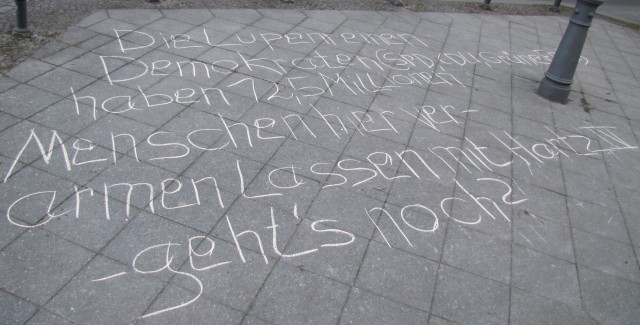 Die Lupenreinen
Demokraten (SPD, CDU, Grüne, FDP)
haben 12,5 Millionen
Menschen hier ver-
armen Lassen mit Hartz IV
- geht's noch?